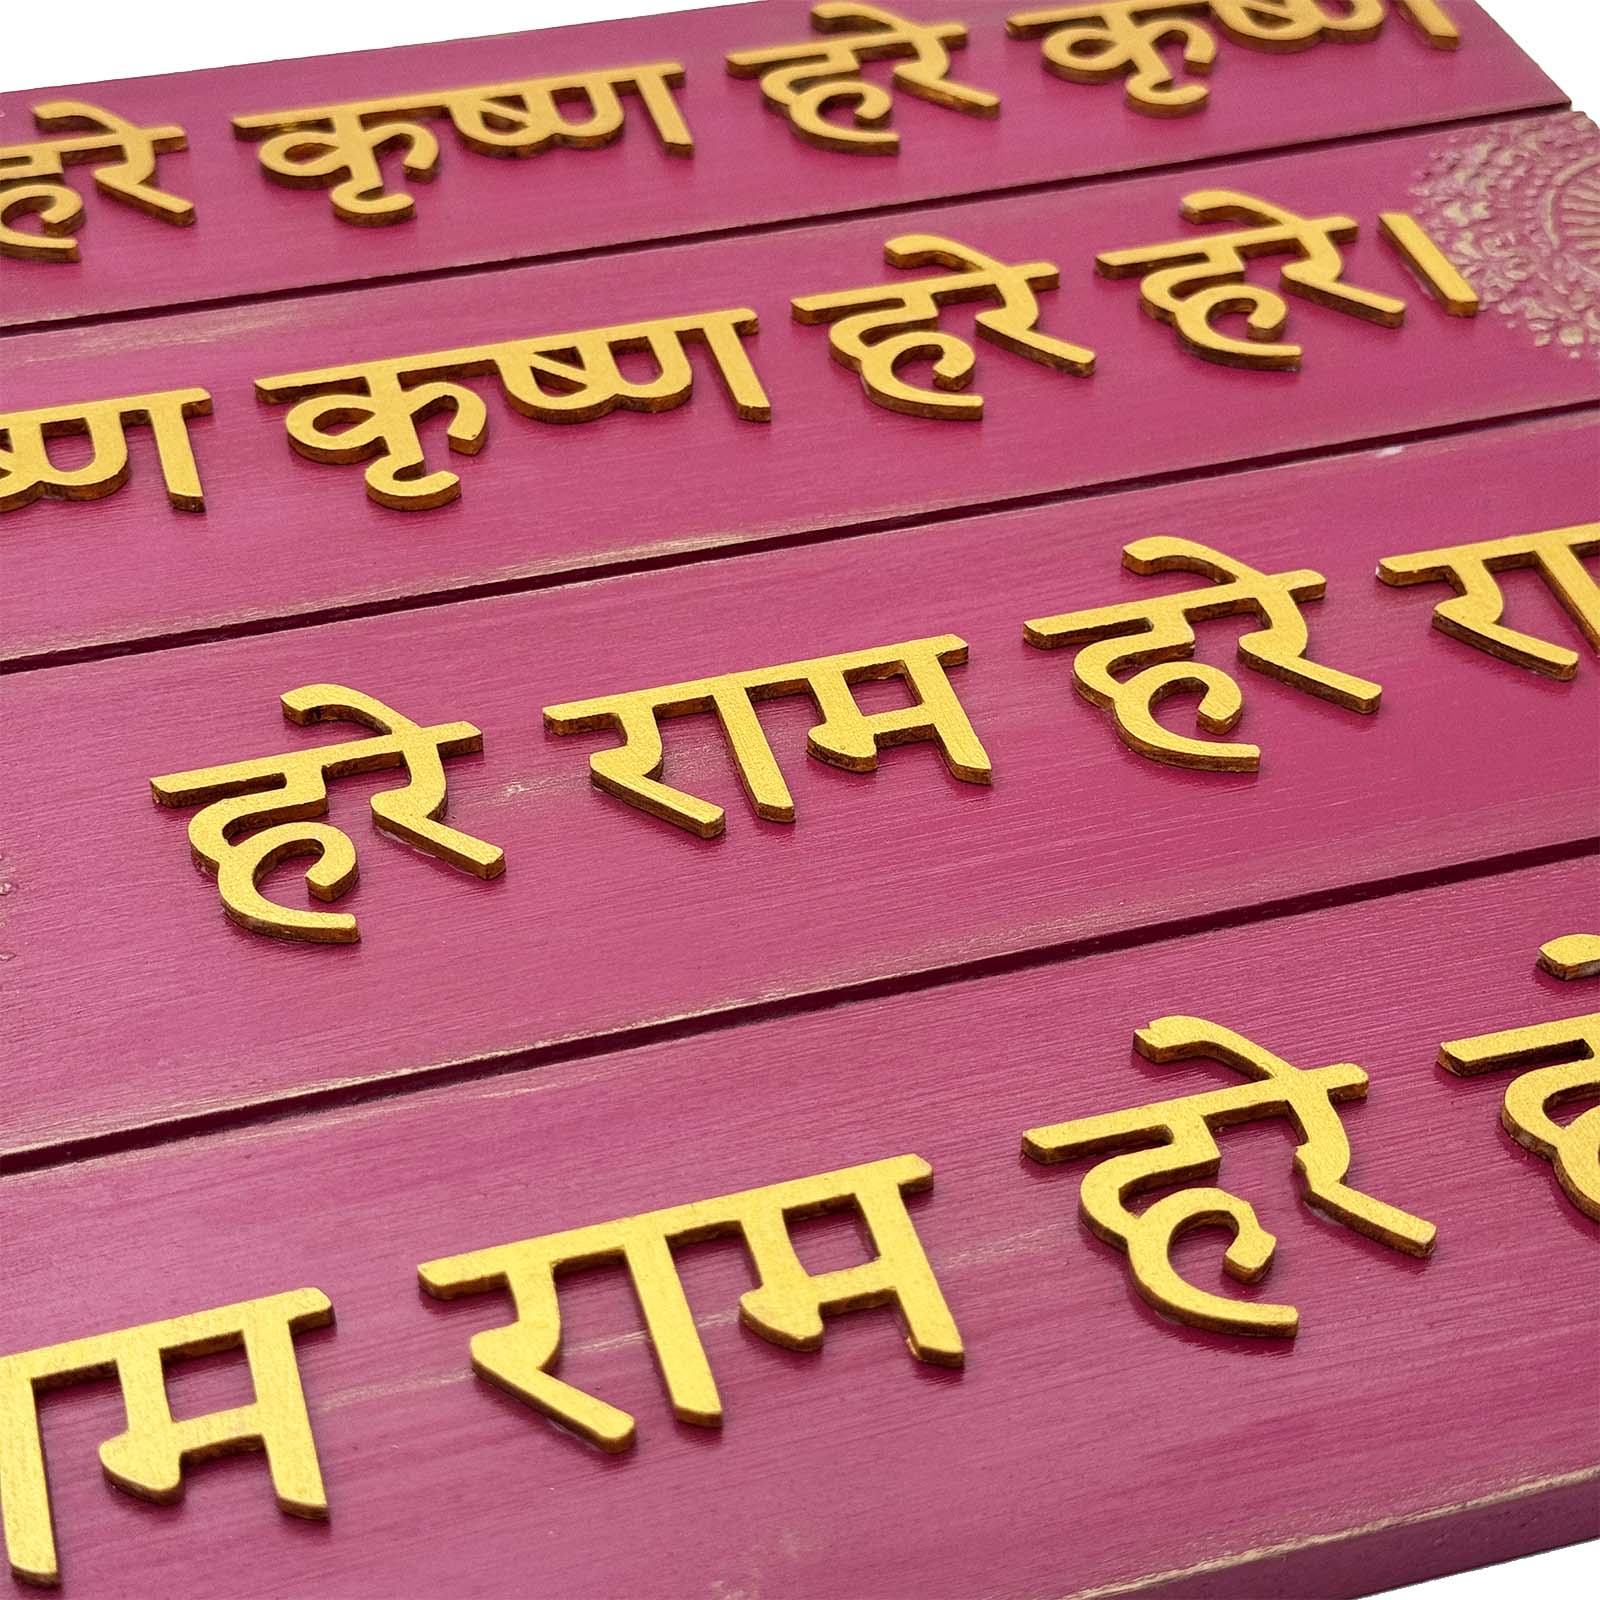 हरे कृष्ण हरे कृष्ण।
कृष्ण हरे हरे।
हरे राम हरे
राम हरे